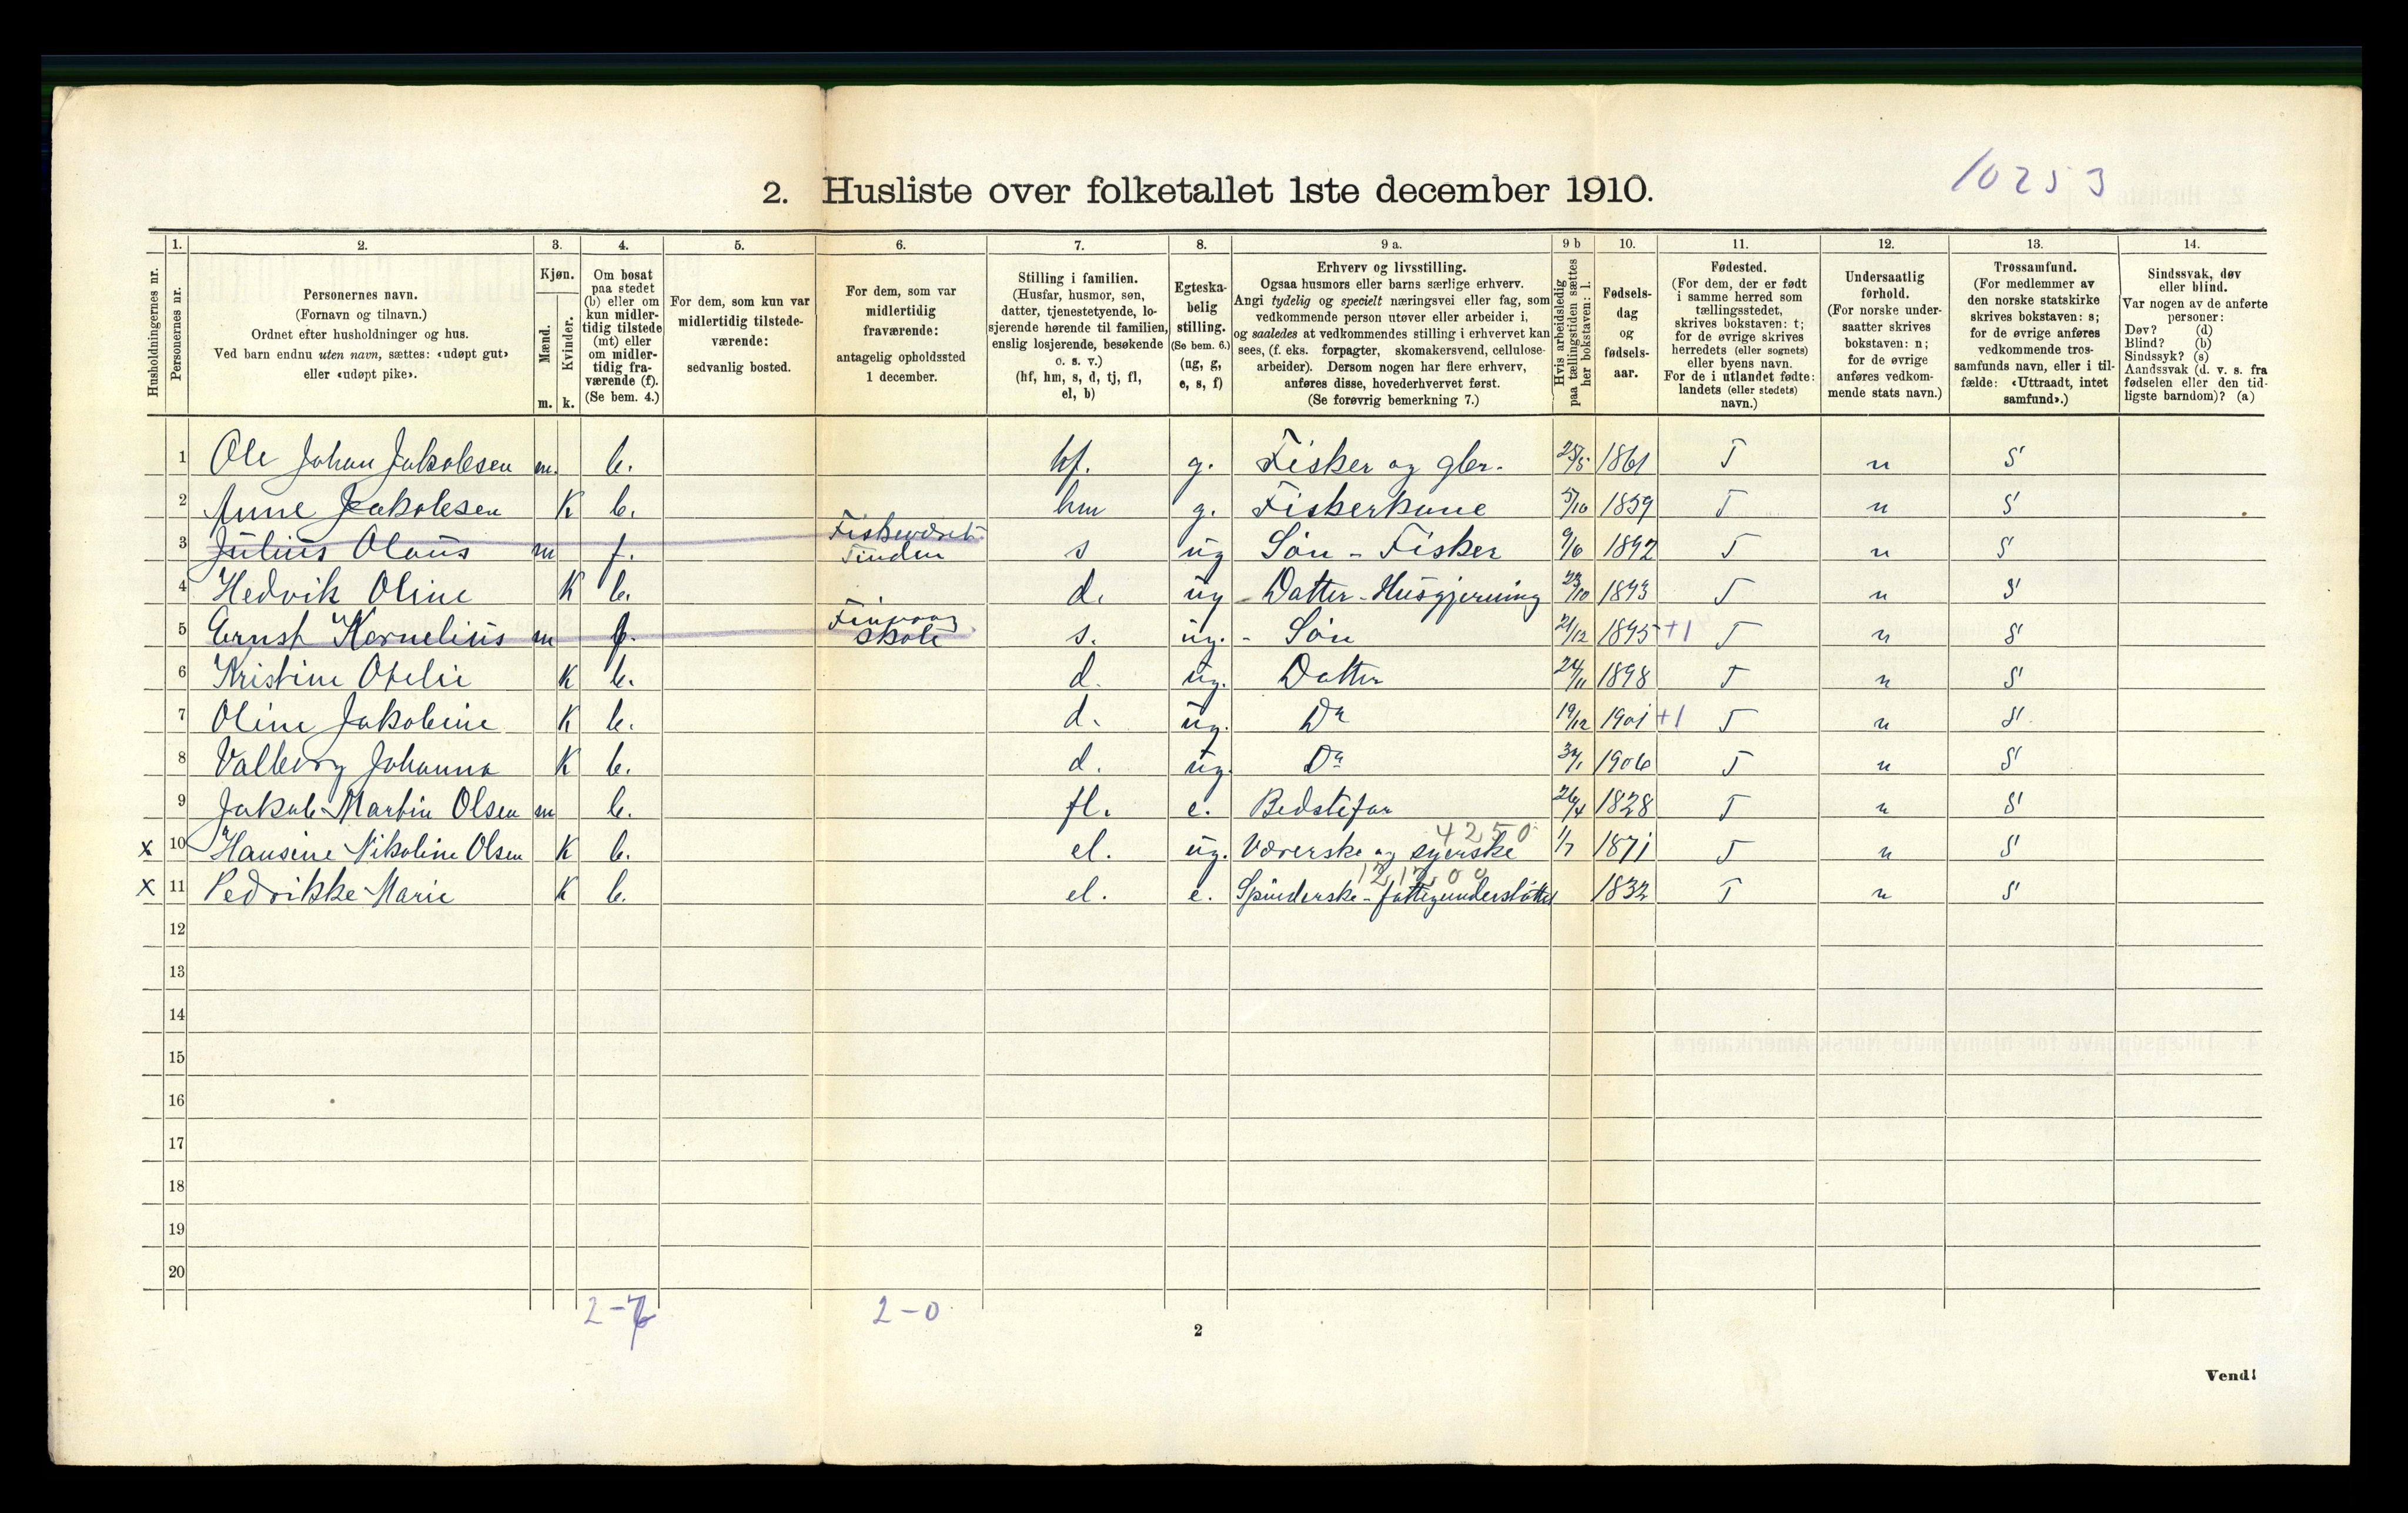 10253
2. Husliste over folketallet 1ste december 1910.
Husholdningernes nr.
1.
Personernes nr.
2.
Personernes navn.
(Fornavn og tilnavn.)
Ordnet efter husholdninger og hus.
Ved barn endnu uten navn, sættes: «udøpt gut»
eller «udøpt pike».
3.
Kjøn.
Mænd.
Kvinder.
m. k.
4.
Om bosat
paa stedet
(b) eller om
kun midler-
tidig tilstede
(mt) eller
om midler-
tidig fra-
værende (f).
(Se bem. 4.)
5.
For dem, som kun var
midlertidig tilstede-
værende:
sedvanlig bosted.
6.
For dem, som var
midlertidig
fraværende:
antagelig opholdssted
1 december.
7.
Stilling i familien.
(Husfar, husmor, søn,
datter, tjenestetyende, lo-
sjerende hørende til familien,
enslig losjerende, besøkende
o. s. v.)
(hf, hm, s, d, tj, fl,
el, b)
8.
Egteska-
belig
stilling.
(Se bem. 6.)
(ug, g,
e, s, f)
9 a.
Erhverv og livsstilling.
Ogsaa husmors eller barns særlige erhverv.
Angi tydelig og specielt næringsvei eller fag, som
vedkommende person utøver eller arbeider i,
og saaledes at vedkommendes stilling i erhvervet kan
sees, (f. eks. forpagter, skomakersvend, cellulose-
arbeider). Dersom nogen har flere erhverv,
anføres disse, hovederhvervet først.
(Se forøvrig bemerkning 7.)
9 b
Hvis arbeidsledig
paa tællingstiden sættes
her bokstaven: l.
10.
Fødsels-
dag
og
fødsels-
aar.
11.
Fødested.
(For dem, der er født
i samme herred som
tællingsstedet,
skrives bokstaven: t;
for de øvrige skrives
herredets (eller sognets)
eller byens navn.
For de i utlandet fødte:
landets (eller stedets)
navn.)
12.
Undersaatlig
forhold.
(For norske under-
saatter skrives
bokstaven: n;
for de øvrige
anføres vedkom-
mende stats navn.)
13.
Trossamfund.
(For medlemmer av
den norske statskirke
skrives bokstaven: s;
for de øvrige anføres
vedkommende tros-
samfunds navn, eller i til-
fælde: «Uttraadt, intet
samfund».)
14.
Sindssvak, døv
eller blind.
Var nogen av de anførte
personer:
Døv? (d)
Blind? (b)
Sindssyk? (s)
Aandssvak (d. v. s. fra
fødselen eller den tid-
ligste barndom)? (a)
1 Ole Johan Jakobsen m. b. hf. g. Fisker og gbr. 25/5 1861 T n S
2 Anne Jakobsen K b. hm g. Fiskerkone 5/10 1859 T n S
3 Julius Olaus m f. Fiskeværet Tinden s ug Søn - Fisker 9/6 1892 T n S
4 Hedvik Oline K b. d. ug - Datter - Husgjerning 23/10 1893 T n S
5 Ernst Kornelius m f. Skole s. ug. - Søn 21/12 1895 +1 T n S
6 Kristine Otelie K b. d. ug. Datter 24/11 1898 T n S
7 Oline Jakobine K b. d. ug. Do 19/12 1901 +1 T n S
8 Valborg Johanna K b. d. ug. Do 1906 T n S
9 Jakob Martin Olsen m b. fl. e. Bedstefar 26/4 1828 T n S
4250
x 10 Hansine Nikoline Olsen K b. el. ug. Væverske og syerske 1/7 1871 T n S
x 11 Pedrikke Marie K b. el. e. Spinderske - fattigunderstøttet 1832 T n S
12
13
14
15
16
17
18
19
20
2-0
2
Vend!